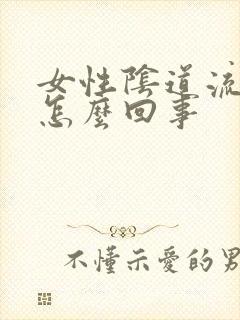 女性陰道流
怎麼回事
不懂示愛的男